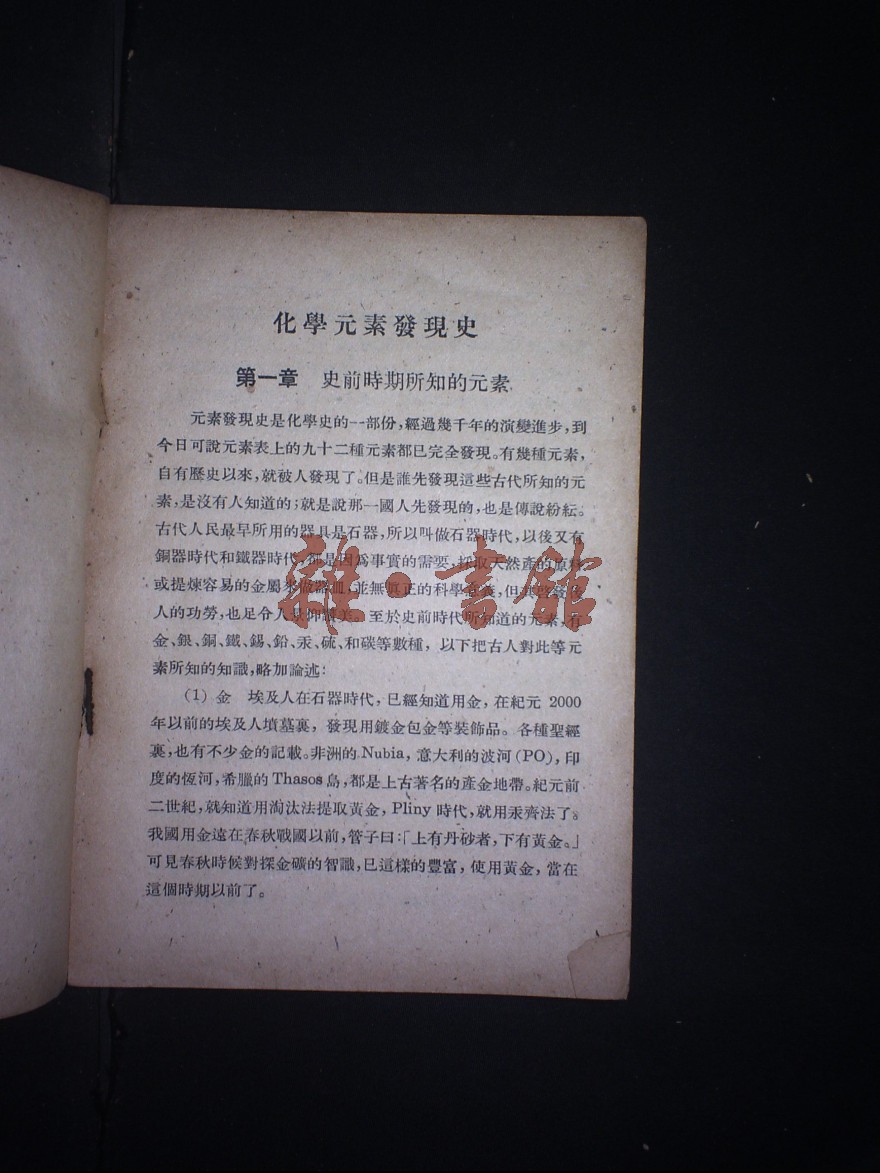 化學元素發現史
第一章 史前時期所知的元素
元素發現史是化學史的一部份，經過幾千年的演變進步，到
今日可說元素表上的九十二種元素都已完全發現。有幾種元素，
自有歷史以來，就被人發現了。但是誰先發現這些古代所知的元
素，是沒有人知道的；就是說那一國人先發現的，也是傳說紛紜。
古代人民最早所用的器具是石器，所以叫做石器時代，以後又有
銅器時代和鐵器時代，都是因爲事實的需要，採取天然產的原料
或提煉容易的金屬來做器皿，並無眞正的科學意義，但其啓發後
人的功勞，也足令人景仰讚美。至於史前時代所知道的元素，有
金、銀、銅、鐵、錫、鉛、汞、硫、和碳等數種，以下把古人對此等元
素所知的知識，略加論述：
(1) 金 埃及人在石器時代，已經知道用金，在紀元 2000
年以前的埃及人墳墓裏，發現用鍍金包金等裝飾品。各種聖經
裏，也有不少金的記載。非洲的 Nubia，意大利的波河(PO)，印
度的恆河，希臘的 Thasos 島，都是上古著名的產金地帶。紀元前
二世紀，就知道用淘汰法提取黃金，Pliny 時代，就用汞齊法了。
我國用金遠在春秋戰國以前，管子曰：「上有丹砂者，下有黃金。」
可見春秋時候對探金礦的智識，已這樣的豐富，使用黃金，當在
這個時期以前了。
雜·書館